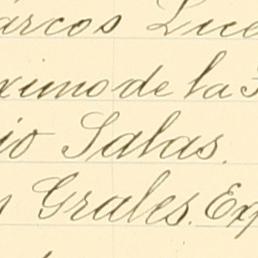 arcos Luc
ximo de la
io Salas.
Grales. Exp